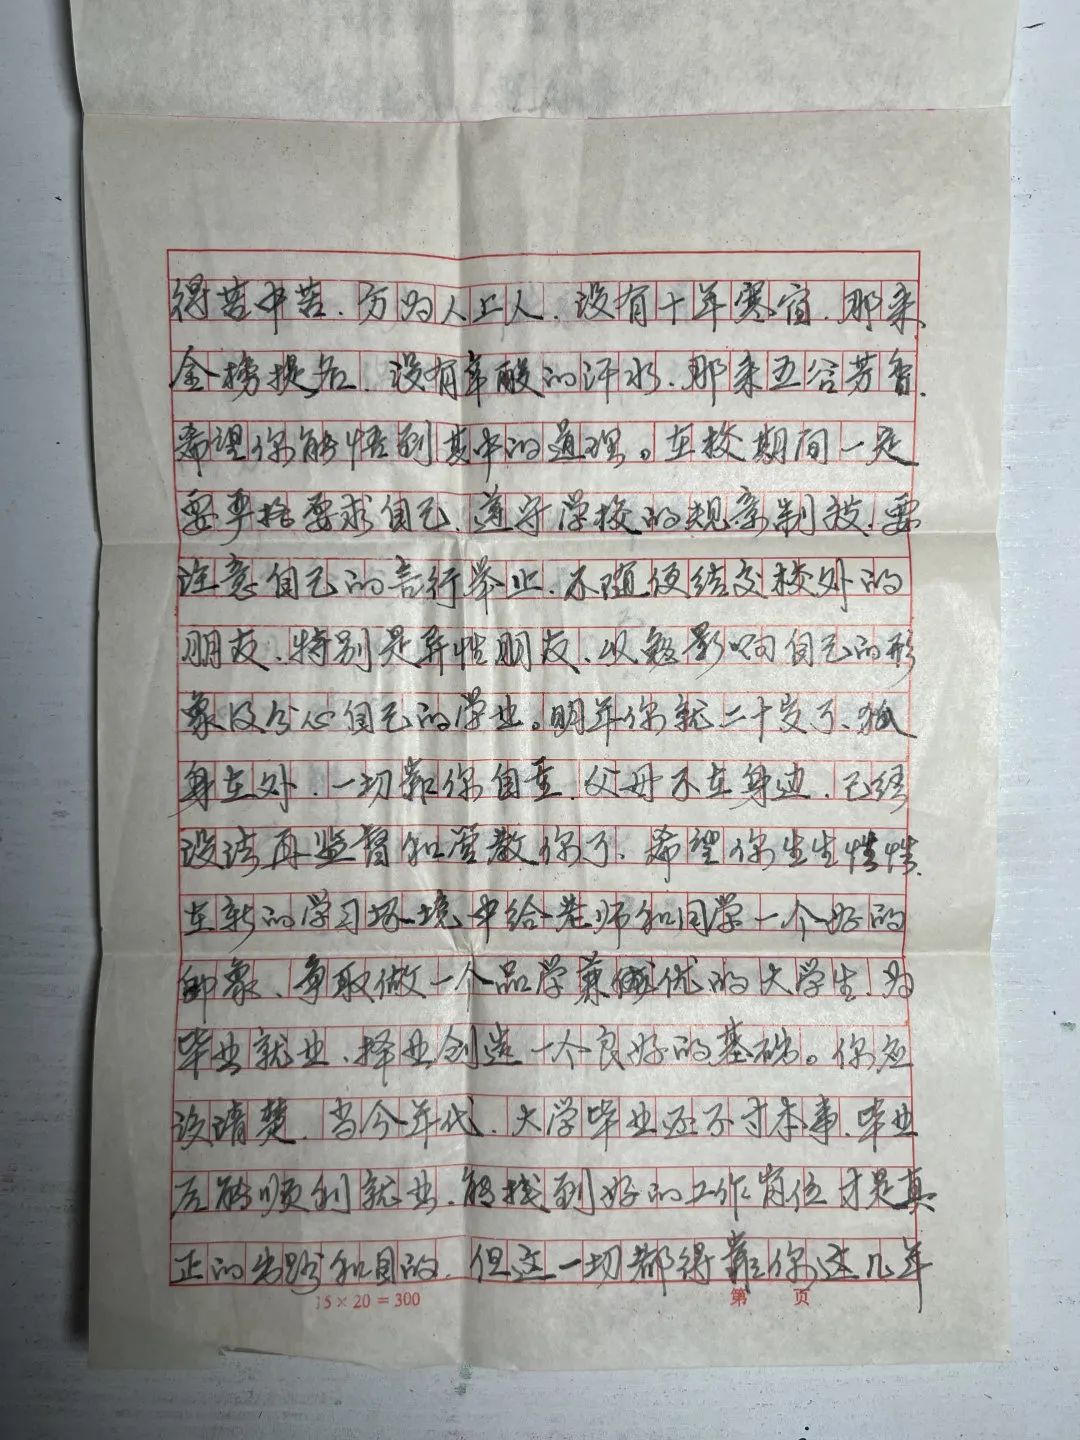 得苦中苦.方为人上人.没有十年寒窗.那来
金榜提名.没有辛酸的汗水.那来五谷芳香.
希望你能悟到其中的道理。在校期间一定
要严格要求自己.遵守学校的规章制度.要
注意自己的言行举止.不随便结交校外的
朋友.特别是异性朋友.以免影响自己的形
象及分心自己的学业。明年你就二十岁了.孤
身在外.一切靠你自重.父母不在身边.已经
没法再监督和管教你了.希望你生生性性.
在新的学习环境中给老师和同学一个好的
印象.争取做一个品学兼优的大学生.为
毕业就业.择业创造一个良好的基础。你应
该清楚.当今年代.大学毕业还不寸本事.毕业
后能顺利就业.能找到好的工作岗位才是真
正的出路和目的.但这一切都得靠你这几年
15×20=300 第 页